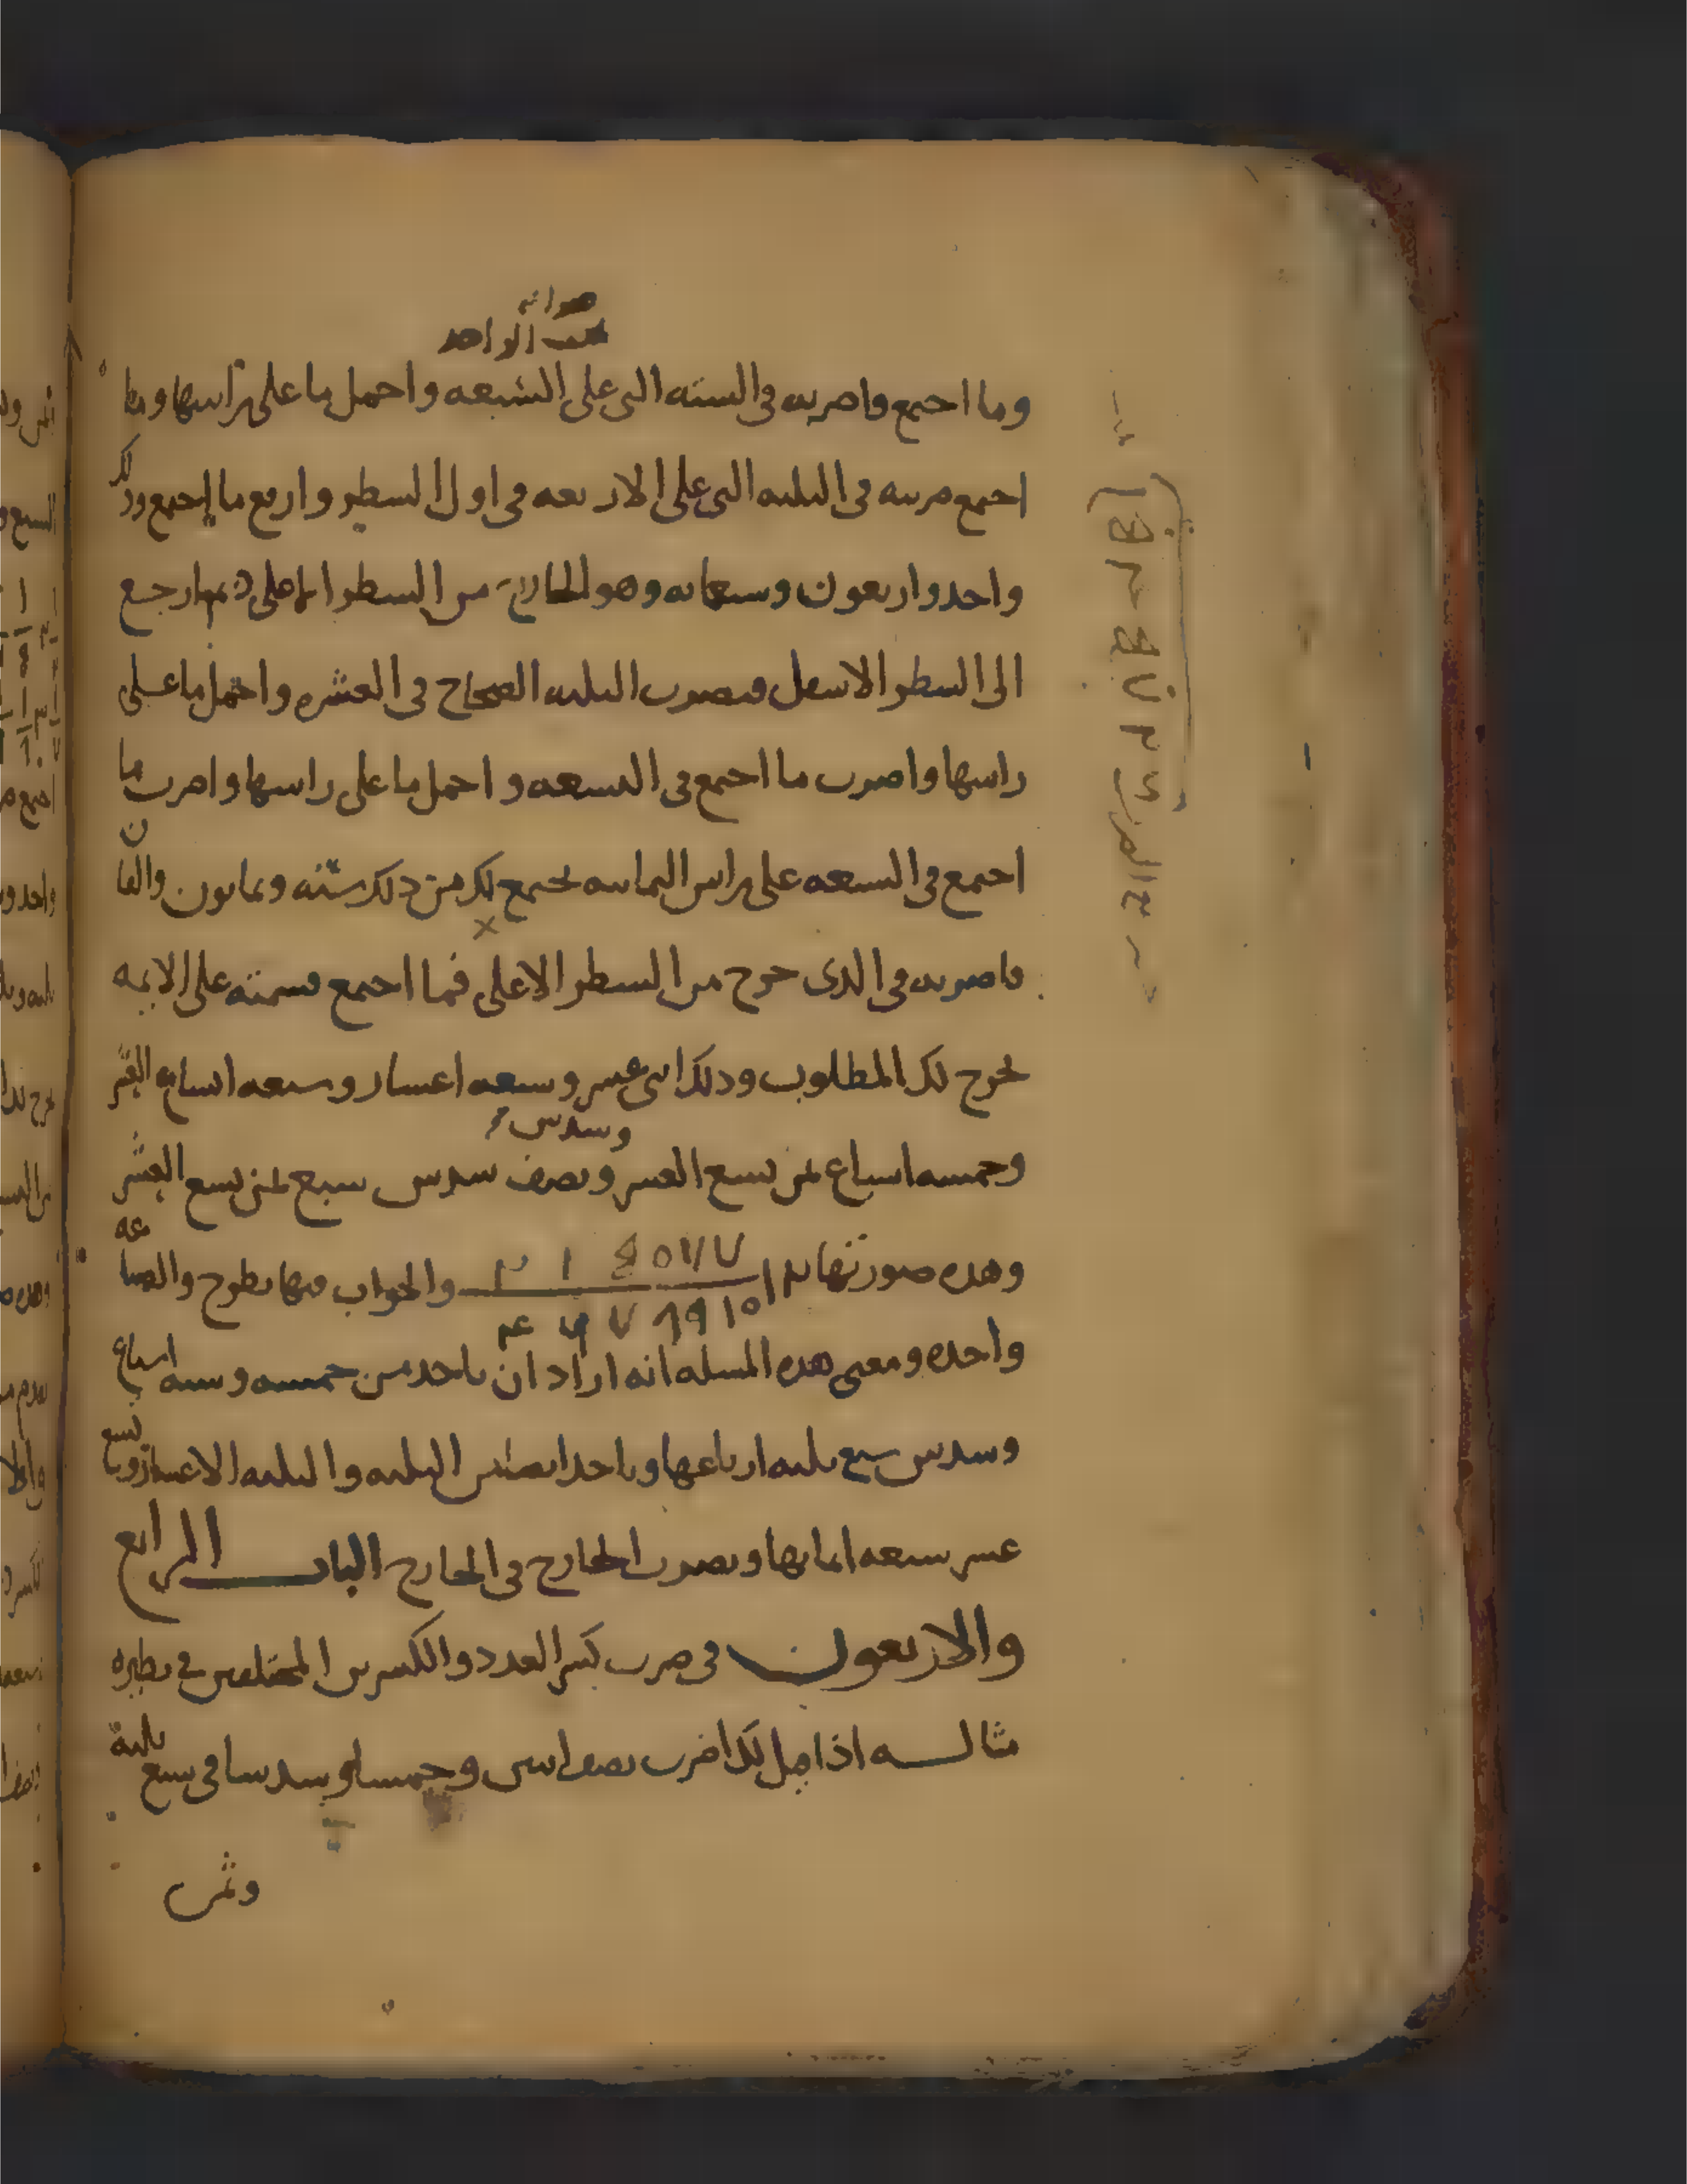 صوابه
الواحد
وما اجتمع فاضربه في الستة التي على السبعة واحمل ما على راسها وما
اجتمع ضربته في الثلثة التي على الاربعة في اول السطر واربع ما اجتمع وذلك
واحد واربعون وسبعمائة وهو الخارج من السطر الاعلى ثم ارجع
الى السطر الاسفل فتضرب الثلثة الصحاح في العشرة واحمل ما على
راسها واضرب ما اجتمع في التسعة واحمل ما على راسها واضرب ما
اجتمع في السبعة على راس الثمانية يجتمع لك من ذلك ستة وثمانون والفان
فاضربه في الذي خرج من السطر الاعلى فما اجتمع قسمته على الايمة
يخرج لك المطلوب وذلك اثنى عشر وسبعة اعشار وسبعة اتساع العشر
وسدس
وخمسة اسباع ثمن تسع العشر ونصف سدس سبع ثمن تسع العشر
وهذه صورتها والجواب فيها بطرح والصناعة
واحدة ومعنى هذه المسلة انه اراد ان ياخذ من خمسة وستة اسباع
وسدس سبع ثلثة ارباعها وياخذ ايضا من الثلثة والثلثة الاعشار وتسع
عشر سبعة اثمانها ويضرب الخارج في الخارج الباب الرابع
والاربعون في ضرب كسر العدد والكسرين المختلفين في نظيره
مثاله اذا قيل لك اضرب نصف اثنين وخمسا وسدسا في تسع ثلثة
وثمن